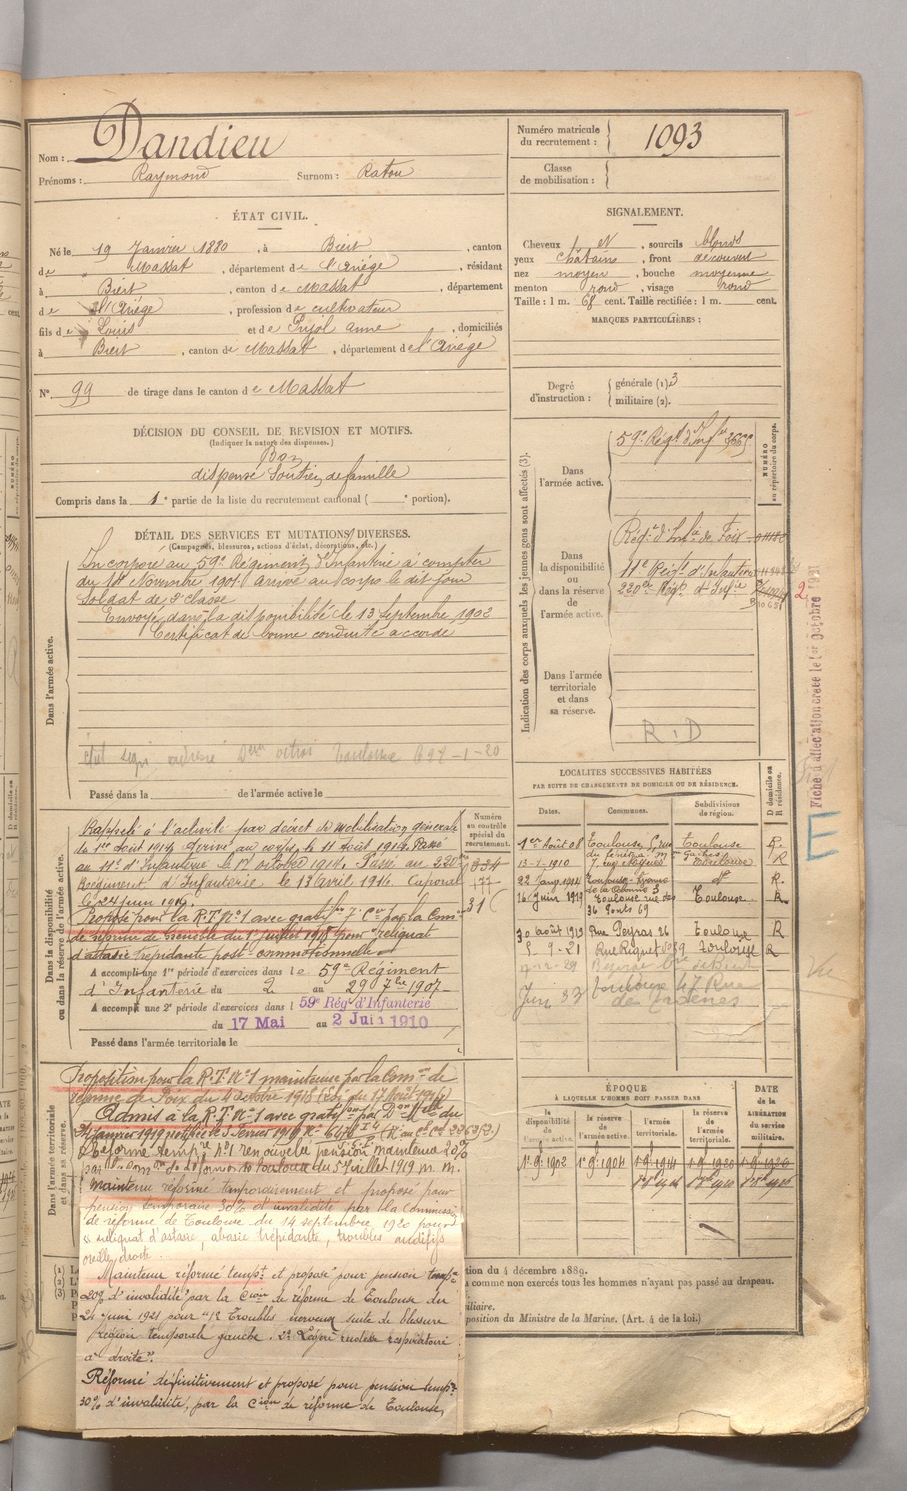 Nom : Dandieu
Prénoms : Raymond Surnom : Ratou
Numéro matricule du recrutement : 1093
Classe de mobilisation :
ÉTAT CIVIL.
Né le 19 Janvier 1880, à Biert, canton
de Massat, département de l'Ariège, résidant
à Biert, canton de Massat, département
de l'Ariège, profession de cultivateur
fils de Louis et de Pujol Anne, domiciliés
à Biert, canton de Massat, département de l'Ariège
N° 99 de tirage dans le canton de Massat
SIGNALEMENT.
Cheveux et, sourcils blonds
yeux châtains, front découvert
nez moyen, bouche moyenne
menton rond, visage rond
Taille : 1 m. 68 cent. Taille rectifiée : 1 m. cent.
MARQUES PARTICULIÈRES :
Degré d'instruction : générale (1) 3
militaire (2).
DÉCISION DU CONSEIL DE REVISION ET MOTIFS.
(Indiquer la nature des dispenses.)
Bon
dispensé Soutien de famille
Compris dans la 1e partie de la liste du recrutement cantonal ( e portion).
DÉTAIL DES SERVICES ET MUTATIONS DIVERSES.
(Campagnes, blessures, actions d'éclat, décorations, etc.)
Dans l'armée active.
Incorporé au 59e Régiment d'Infanterie à compter
du Novembre 1901 arrivé au corps le dit jour
Soldat de 2e classe
Envoyé dans la disponibilité le 13 Septembre 1902
Certificat de bonne conduite accordé
Toulouse 697-1-20
Passé dans la de l'armée active le
Indication des corps auxquels les jeunes gens sont affectés (3).
NUMÉRO au répertoire du corps.
Dans l'armée active.
59e Régt d'Infie
Dans la disponibilité ou dans la réserve de l'armée active.
Régt d'Infie de Foix
11e Régt d'Infanterie
220e Régt d'Infie
Dans l'armée territoriale et dans sa réserve.
R.D
Fiche d'affectation créée le 1er Octobre 1931
LOCALITÉS SUCCESSIVES HABITÉES
PAR SUITE DE CHANGEMENTS DE DOMICILE OU DE RÉSIDENCE.
Dates. Communes. Subdivisions de région. D domicile ou R résidence.
1er Août 08 Toulouse Toulouse R.
13-1-1910 Toulouse R
22 Janv 1914 Toulouse do R.
16 Juin 1919 Toulouse rue des 36 Ponts 69 Toulouse R
30 août 1919 Rue Peyras 26 Toulouse R
5-9-21 Rue Riquet Toulouse R
Juin 37 Toulouse 47 Rue
Dans la disponibilité ou dans la réserve de l'armée active.
Numéro au contrôle spécial du recrutement.
Rappelé à l'activité par décret de mobilisation générale
du 1er août 1914 arrivé au corps le 11 août 1914. Passé
au 11e d'Infanterie le 17 octobre 1914. Passé au 220e
Régiment d'Infanterie le 13 avril 1914. Caporal
le 24 juin 1915.
Proposé pour la R.T. N°1 avec gratifon par la Comon
de réforme de Grenoble du 1er juillet 1918 pour "reliquat
d'astasie trépidante post-commotionnelle"
A accompli une 1re période d'exercices dans le 59e Régiment
d'Infanterie du 2 au 29 7bre 1907
A accompli une 2e période d'exercices dans l 59e Rég d'Infanterie
du 17 Mai au 2 Juin 1910
Passé dans l'armée territoriale le
Dans l'armée territoriale et dans sa réserve.
Proposition pour la R.T. N°1 maintenue par la Comon de
réforme de Foix du 4 octobre 1918
Admis à la R.T. N°1 avec gratifon par Don Mlle du
31 janvier 1919 notifiée le 3 Février 1919
Réformé tempre n°1 renouvelé pension maintenue 20%
par la Comon de réforme de Toulouse du 5 juillet 1919
Maintenu réformé temporairement et proposé pour
pension temporaire 30% d'invalidité par la Commission
de réforme de Toulouse du 14 septembre 1920 pour
"reliquat d'astasie, abasie trépidante, troubles auditifs
oreille droite.
Maintenu réformé tempt et proposé pour pension tempre
20% d'invalidité par la Cion de réforme de Toulouse du
24 juin 1921 pour "1° Troubles nerveux suite de blessure
région temporale gauche. 2° Légère rudesse respiratoire
à droite".
Réformé définitivement et proposé pour pension tempre
30% d'invalidité, par la Cion de réforme de Toulouse,
ÉPOQUE
À LAQUELLE L'HOMME DOIT PASSER DANS
DATE DE LA LIBÉRATION DU service militaire.
la disponibilité de l'armée active. la réserve de l'armée active. l'armée territoriale. la réserve de l'armée territoriale.
1er 9bre 1902 1er 9bre 1904 1er 9bre 1914 1er 9bre 1920 1er 9bre 1926
tion du 4 décembre 1889.
a comme non exercés tous les hommes n'ayant pas passé au drapeau.
iliaire.
position du Ministre de la Marine. (Art. 4 de la loi.)